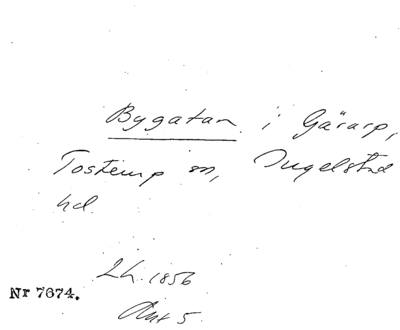 Bygatan i Gärarp,
Tosterup sn, Ingelstad
hd.
Lh. 1856
Akt 5.
Nr 7674.